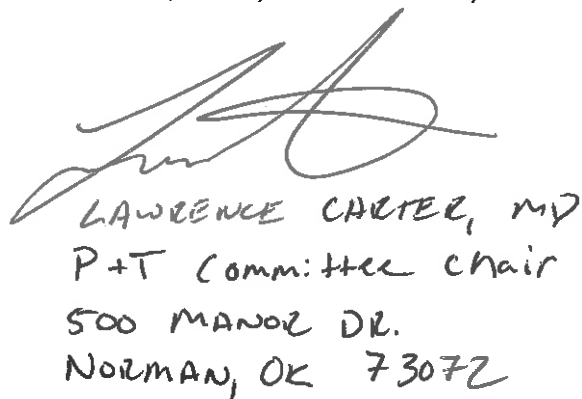 LAWRENCE CARTER, MD
P+T Committee Chair
500 MANOR DR.
NORMAN, OK 73072